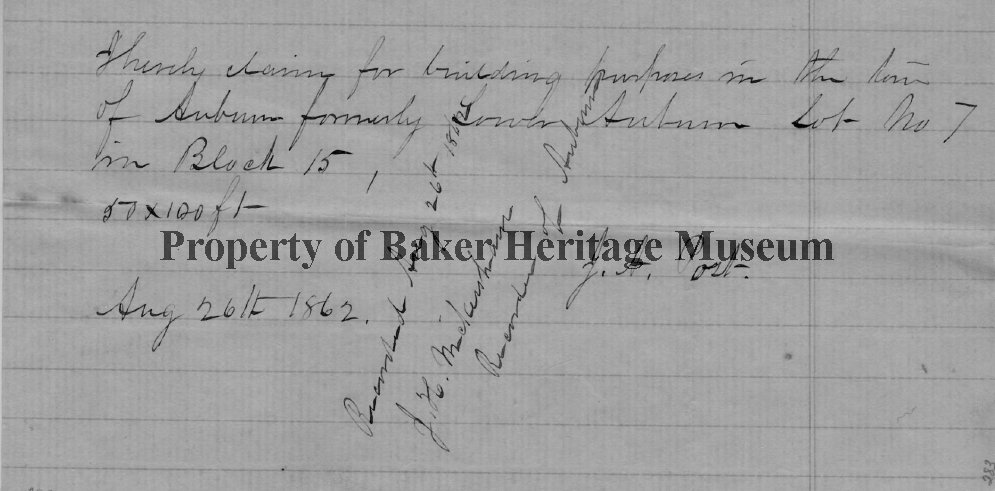 I hereby claim for building purposes in the town
of Auburn formerly Lower Auburn Lot No 7
in Block 15,
50 x 100 ft
J. A. Post.
Aug 26th 1862.
Recorded Aug 26th 1862
J. H.
Recorder of Auburn
Property of Baker Heritage Museum
283